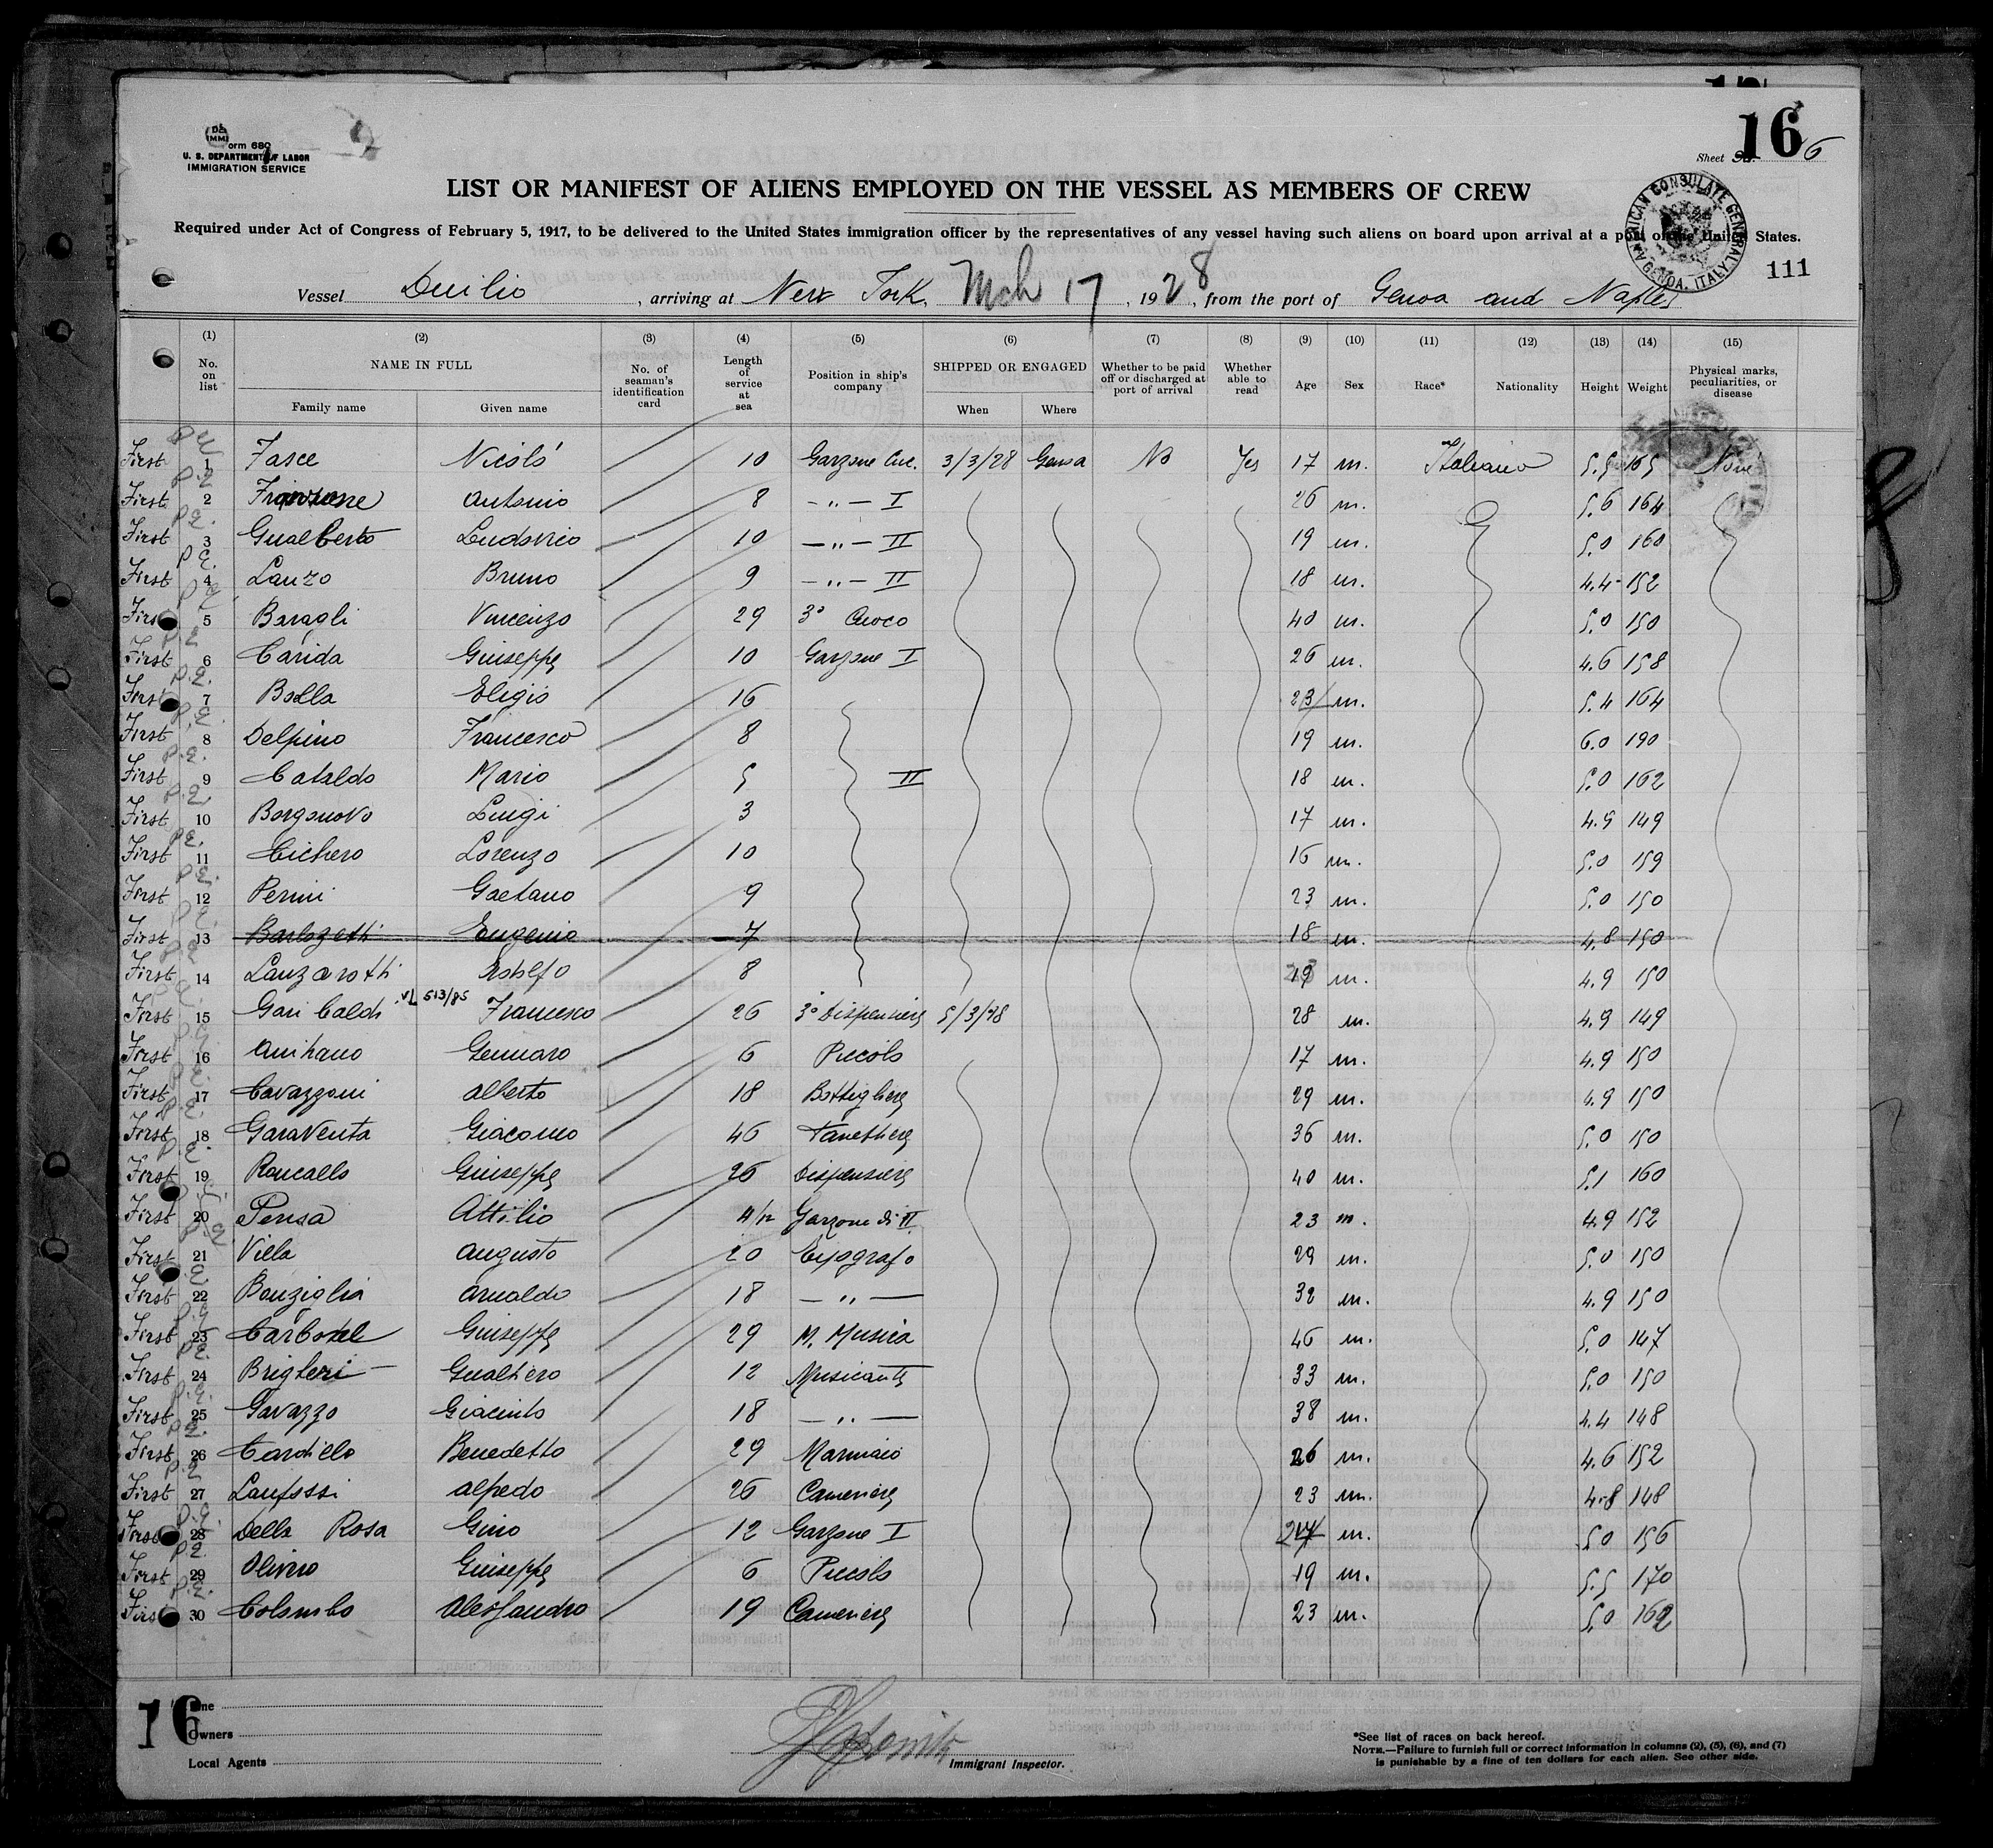 16
Form 680
U. S. DEPARTMENT OF LABOR
IMMIGRATION SERVICE
Sheet No. 6
LIST OR MANIFEST OF ALIENS EMPLOYED ON THE VESSEL AS MEMBERS OF CREW
Required under Act of Congress of February 5, 1917, to be delivered to the United States immigration officer by the representatives of any vessel having such aliens on board upon arrival at a port of the United States.
AMERICAN CONSULATE GENERAL GENOA, ITALY
111
Vessel Duilio, arriving at New York, Mch 17, 1928, from the port of Genoa and Naples
(1) (2) (3) (4) (5) (6) (7) (8) (9) (10) (11) (12) (13) (14) (15)
No. on list NAME IN FULL No. of seaman's identification card Length of service at sea Position in ship's company SHIPPED OR ENGAGED Whether to be paid off or discharged at port of arrival Whether able to read Age Sex Race* Nationality Height Weight Physical marks, peculiarities, or disease
Family name Given name When Where
First 1 Fasce Nicoló 10 Garzone Cuc. 3/3/28 Genoa No Yes 17 m. Italiano 5.5 165 None
First 2 Antonio 8 — " — I 26 m. 5.6 164
First 3 Gualberto Ludovico 10 — " — II 19 m. 5.0 160
First 4 Lanzo Bruno 9 — " — II 18 m. 4.4 152
First 5 Baragli Vincenzo 29 3° Cuoco 40 m. 5.0 150
First 6 Carida Giuseppe 10 Garzone I 26 m. 4.6 158
First 7 Bolla Eligio 16 23 m. 5.4 164
First 8 Delpino Francesco 8 19 m. 6.0 190
First 9 Cataldo Mario 5 II 18 m. 5.0 162
First 10 Borgonovo Luigi 3 17 m. 4.9 149
First 11 Cichero Lorenzo 10 16 m. 5.0 159
First 12 Perini Gaetano 9 23 m. 5.0 150
First 13 Barlozetti Eugenio 7 18 m. 4.8 150
First 14 Lanzarotti Astolfo 8 19 m. 4.9 150
First 15 Garibaldi VL 513/85 Francesco 26 3° Dispensiere 5/3/28 28 m. 4.9 149
First 16 Amitrano Gennaro 6 Piccolo 17 m. 4.9 150
First 17 Cavazzoni Alberto 18 Bottigliere 29 m. 4.9 150
First 18 Garaventa Giacomo 46 Panettiere 36 m. 5.0 150
First 19 Roncallo Giuseppe 26 Dispensiere 40 m. 5.1 160
First 20 Pensa Attilio 4/12 Garzone di II 23 m. 4.9 152
First 21 Villa Augusto 20 Tipografo 29 m. 5.0 150
First 22 Bonziglia Arnaldo 18 — " — 32 m. 4.9 150
First 23 Carbonel Giuseppe 29 M. Musica 46 m. 5.0 147
First 24 Brigheri Gualtiero 12 Musicante 33 m. 5.0 150
First 25 Gavazzo Giacinto 18 — " — 38 m. 4.4 148
First 26 Cardillo Benedetto 29 Marinaio 26 m. 4.6 152
First 27 Lanfossi Alfredo 26 Cameriere 23 m. 4.8 148
First 28 Della Rosa Gino 12 Garzone I 24 m. 5.0 156
First 29 Olivero Giuseppe 6 Piccolo 19 m. 5.5 170
First 30 Colombo Alessandro 19 Cameriere 23 m. 5.0 162
16
Line
Owners
Local Agents
Immigrant Inspector.
*See list of races on back hereof.
NOTE.—Failure to furnish full or correct information in columns (2), (5), (6), and (7)
is punishable by a fine of ten dollars for each alien. See other side.